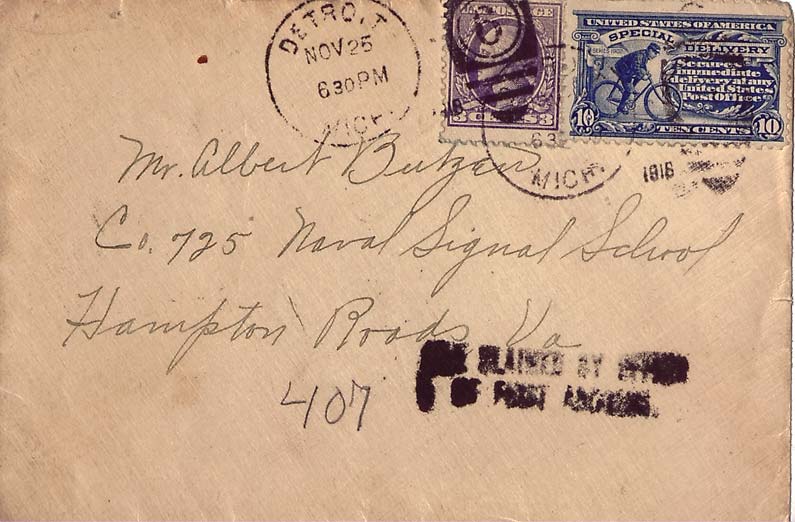 DETROIT
NOV 25
630 PM
MICH.
POSTAGE
3 3
UNITED STATES OF AMERICA
SPECIAL DELIVERY
SERIES 1902
Secures
immediate
delivery at any
United States
Post Office.
10 TEN CENTS 10
63
MICH.
1918
Mr. Albert Butzen
Co. 725 Naval Signal School
Hampton Roads Va
407
CLAIMED BY
OF FIRST